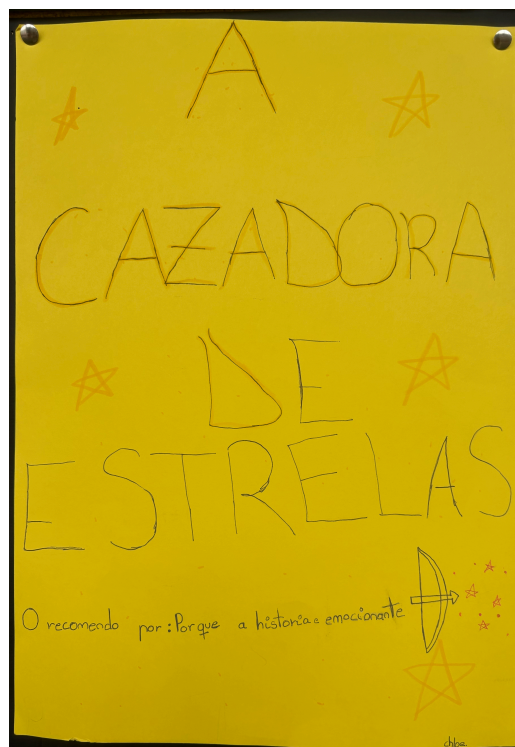 A
CAZADORA
DE
ESTRELAS
O recomendo por: Porque a historia e emocionante
chloe